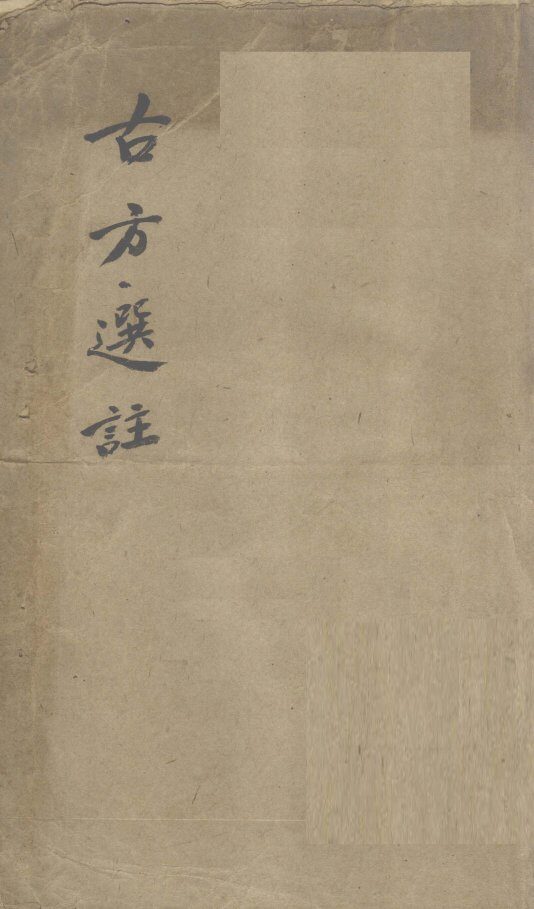 古方選註